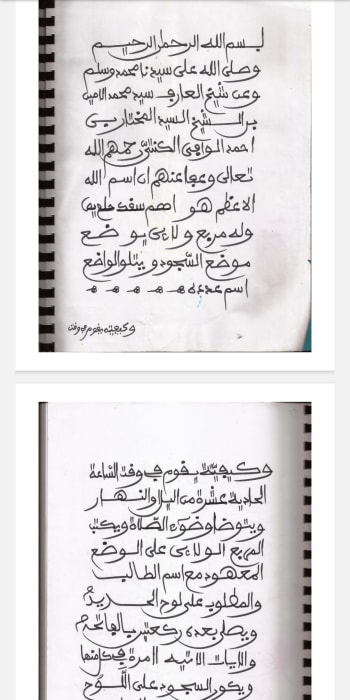 بسم الله الرحمن الرحيم
وصلى الله على سيدنا محمد وسلم
وعن شيخ العارف سيد محمد الامين
بن الشيخ السيد المختار بن
احمد الوافي الكنتي رحمهم الله
تعالى وعفا عنهم ان اسم الله
الاعظم هو اهم سقك حلع يص
وله مربع ولا يوضع
موضع السجود ويتلو الواضع
اسم عدده
وكيفيته يقوم في وقت
وكيفيته يقوم في وقت الساعة
الحادية عشرة من الليل والنهار
ويتوضأ وضوء الصلاة ويكتب
المربع الولائي على الوضع
المعهود مع اسم الطالب
والمطلوب على لوح الحديد
ويصلي بعده ركعتين بالفاتحة
والايات الاتيه مرة في كلتاهما
ويكون السجود على اللوح